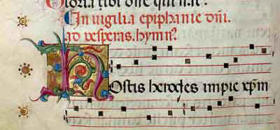 Gloria tibi dñe qui nat⁹
In vigilia epiphanie dñi.
ad vesperas. hymn⁹.
Hostis herodes impie xp̄m